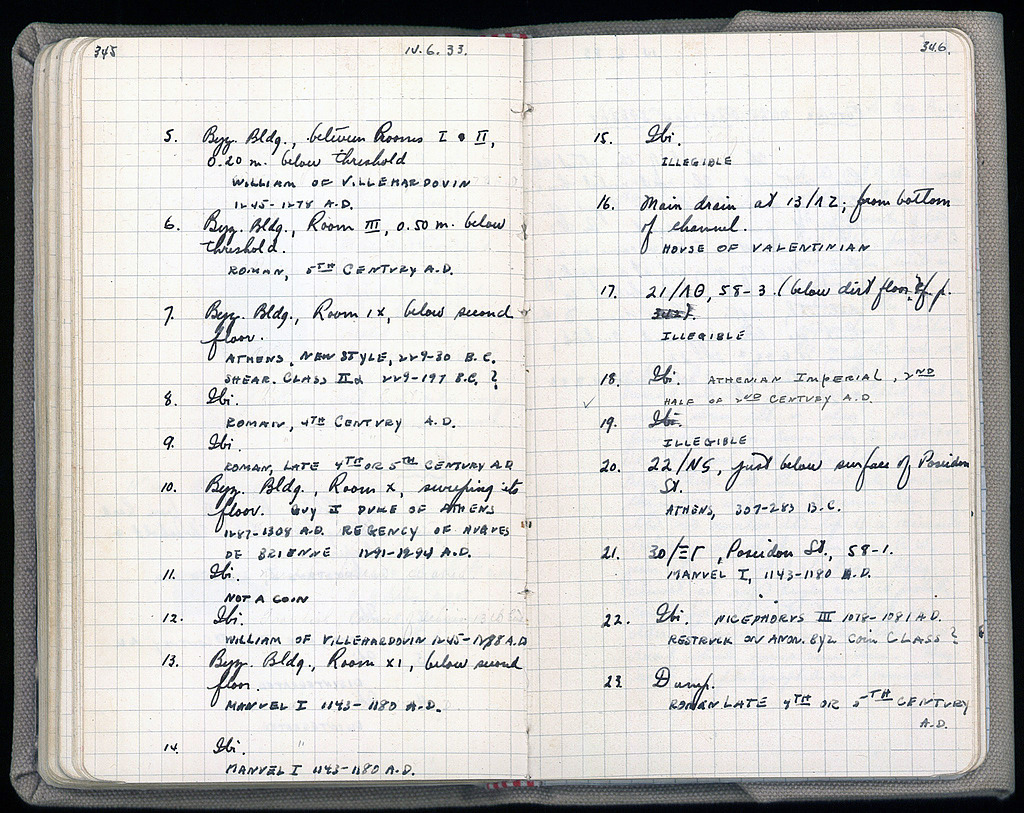 345
14.6.33.
5. Byz. Bldg., between Rooms I & II,
0.20 m. below threshold
WILLIAM OF VILLEHARDOVIN
1245-1278 A.D.
6. Byz. Bldg., Room III, 0.50 m. below
threshold.
ROMAN, 5TH CENTURY A.D.
7. Byz. Bldg., Room IX, below second
floor.
ATHENS, NEW STYLE, 229-30 B.C.
SHEAR. CLASS II 229-197 B.C. ?
8. Ibi.
ROMAN, 4TH CENTURY A.D.
9. Ibi.
ROMAN, LATE 4TH OR 5TH CENTURY A.D
10. Byz. Bldg., Room X, sweeping its
floor. GUY II DUKE OF ATHENS
1287-1308 A.D. REGENCY OF HUGUES
DE BRIENNE 1291-1294 A.D.
11. Ibi.
NOT A COIN
12. Ibi.
WILLIAM OF VILLEHARDOVIN 1245-1278 A.D
13. Byz. Bldg., Room XI, below second
floor.
MANUEL I 1143-1180 A.D.
14. Ibi.
MANUEL I 1143-1180 A.D.
346.
15. Ibi.
ILLEGIBLE
16. Main drain at 13/ΛΖ; from bottom
of channel.
HOUSE OF VALENTINIAN
17. 21/ΛΘ, 58-3 (below dirt floor, cf. p.
342).
ILLEGIBLE
18. Ibi. ATHENIAN IMPERIAL, 2ND
HALF OF 2ND CENTURY A.D.
19. Ibi.
ILLEGIBLE
20. 22/ΝΣ, just below surface of Poseidon
St.
ATHENS, 307-283 B.C.
21. 30/ΞΓ, Poseidon St., 58-1.
MANUEL I, 1143-1180 A.D.
22. Ibi. NICEPHORUS III 1078-1081 A.D.
RESTRUCK ON ANON. BYZ COIN CLASS ?
23. Dump.
ROMAN LATE 4TH OR 5TH CENTURY
A.D.